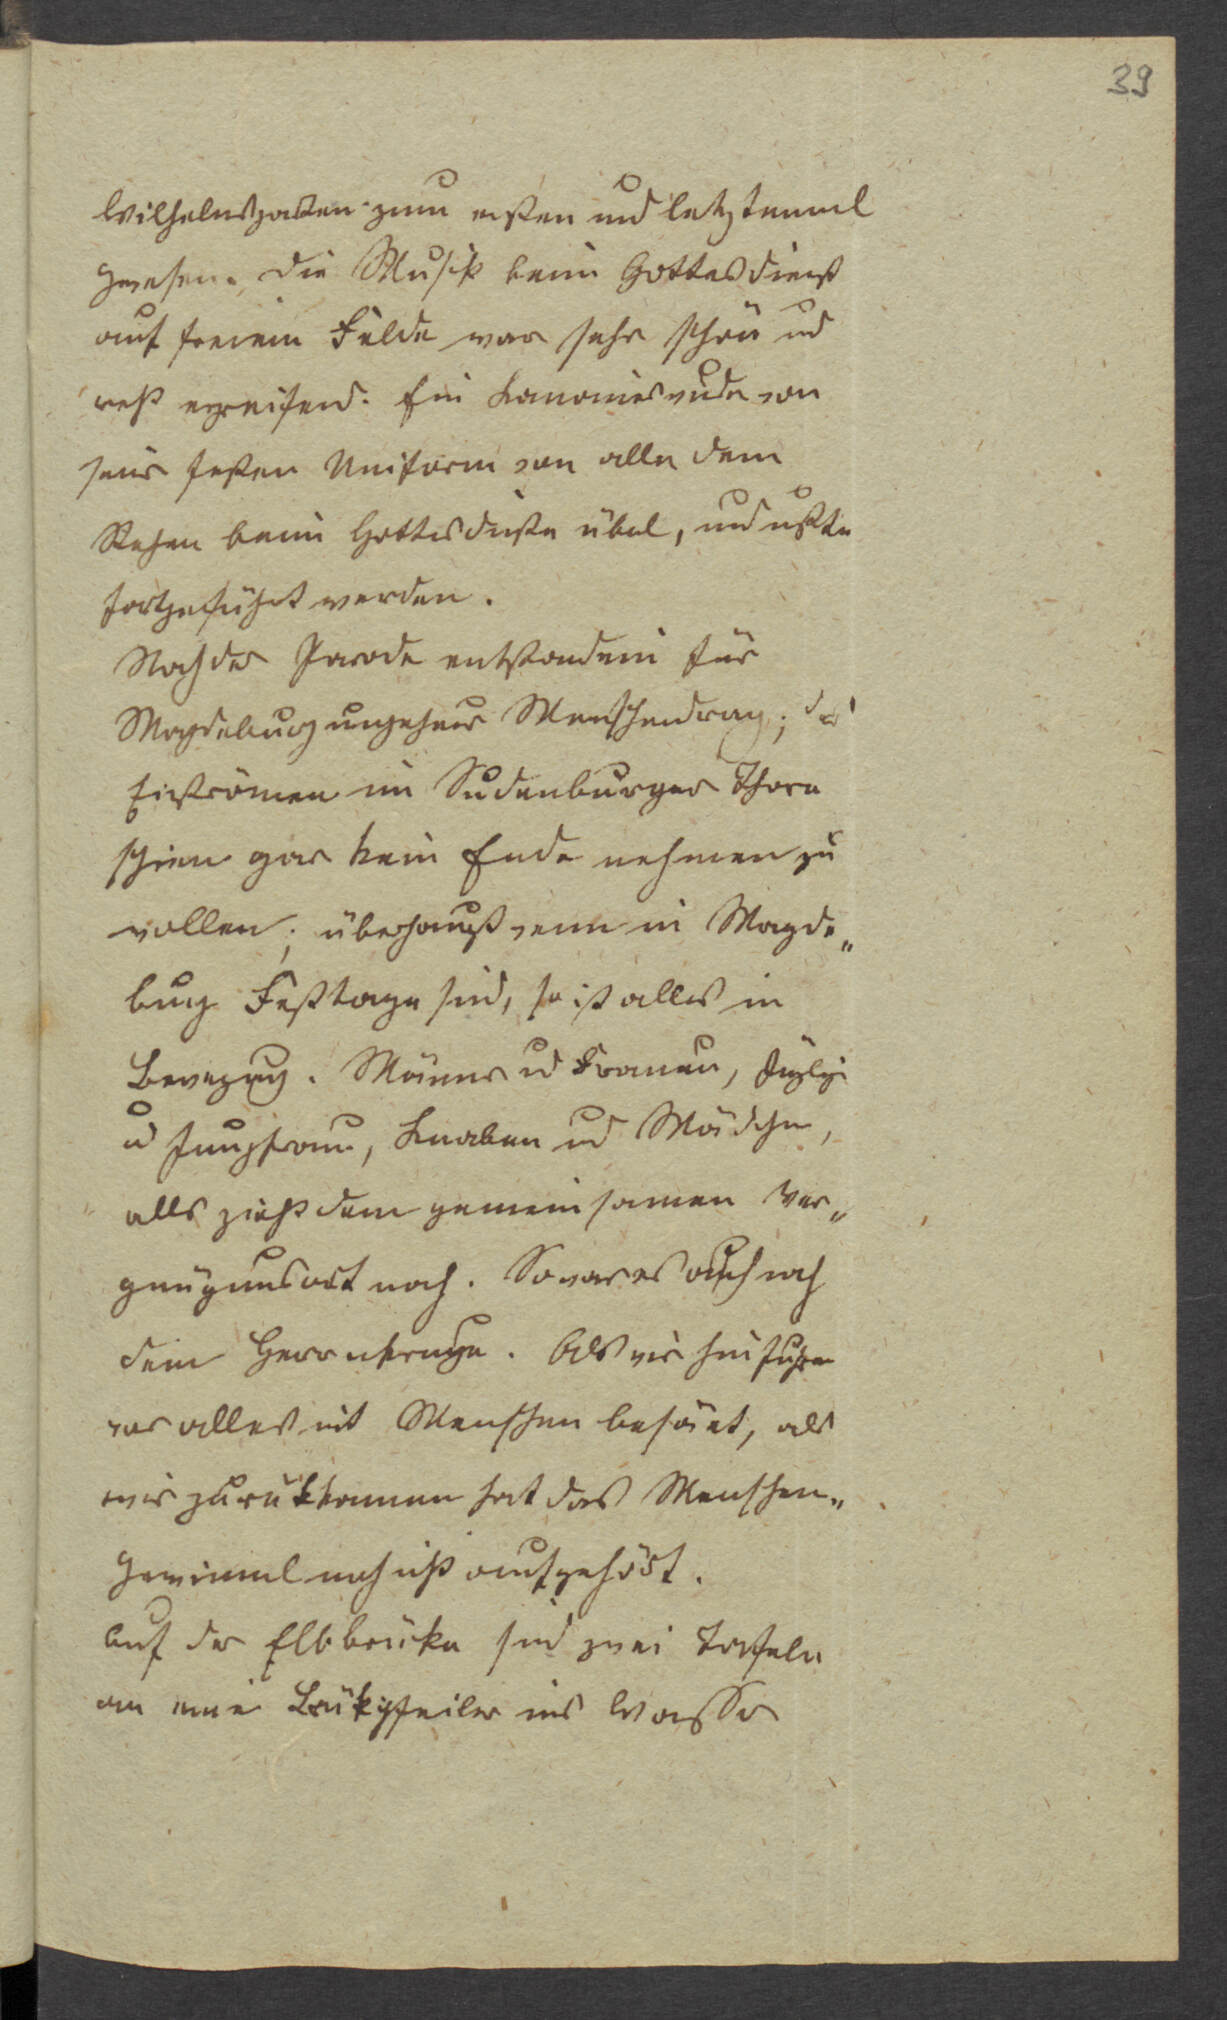 39
Wilhelmsgarten zum ersten und letztenmal
gewesen. Die Musik beim Gottesdienst
auf freiem Felde war sehr schön und
recht ergreifend. Ein Kanonier wurde von
seiner festen Uniform von alle dem
Stehen beim Gottesdienste übel, und mußte
fortgeführt werden.
Nach der Parade entstand ein für
Magdeburg ungeheurer Menschendrang; das
Einströmen im Sudenburger Thore
schien gar kein Ende nehmen zu
wollen; überhaupt wenn in Magde„
burg Festtage sind, so ist alles in
Bewegung. Männer und Frauen, Jünglinge
und Jungfrauen, Knaben und Mädchen,
alles zieht dem gemeinsamen Ver„
gnügunsort nach. So war es auch nach
dem Herrnkruge. Als wir hinfuhren
war alles mit Menschen besäet, als
wir zurükkamen hat das Menschen„
gewimmel noch nicht aufgehört.
Auf der Elbbrücke sind zwei Tafeln
an einem Brükpfeiler ins Wasser